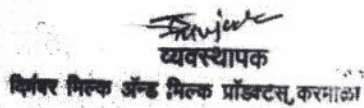 व्यवस्थापक
मिल्क ॲन्ड मिल्क प्रॉडक्टस्, करमाळा